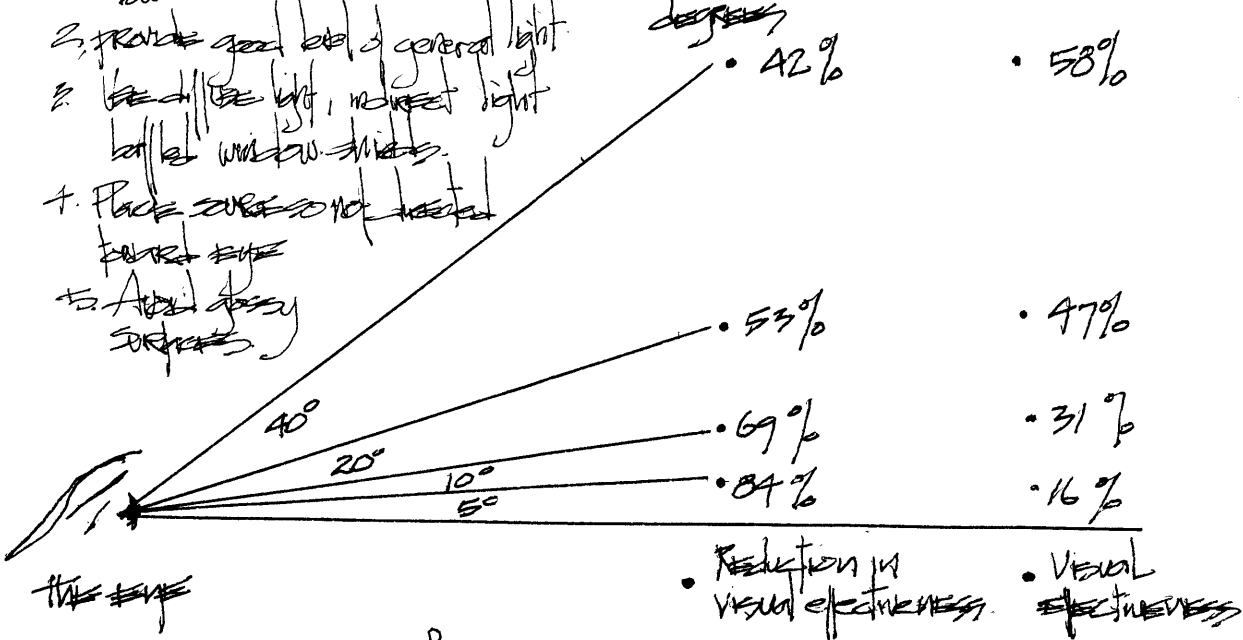 2. Provide good level of general light
degrees
• 42%
• 58%
3. Use diffuse light, indirect light
baffled window shields.
4. Place source so not directed
toward eye
5. Avoid glossy
surfaces.
• 53%
• 47%
40°
• 69%
• 31%
20°
10°
• 84%
• 16%
5°
the eye
• Reduction in
visual effectiveness
• Visual
effectiveness